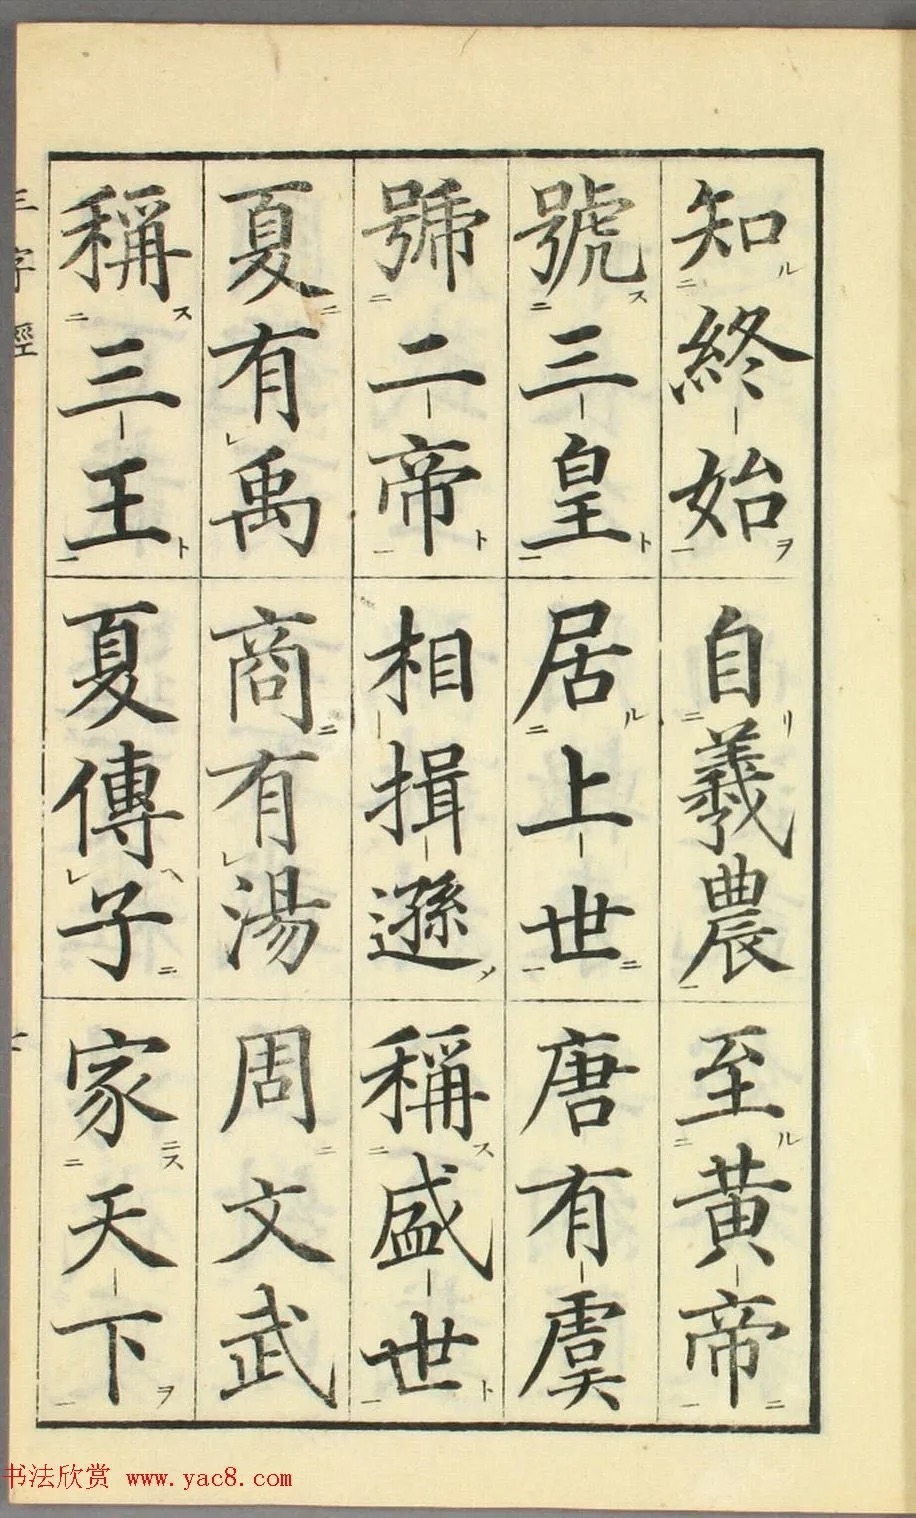 知終始 自羲農 至黃帝
號三皇 居上世 唐有虞
號二帝 相揖遜 稱盛世
夏有禹 商有湯 周文武
稱三王 夏傳子 家天下
三字經
书法欣赏 www.yac8.com